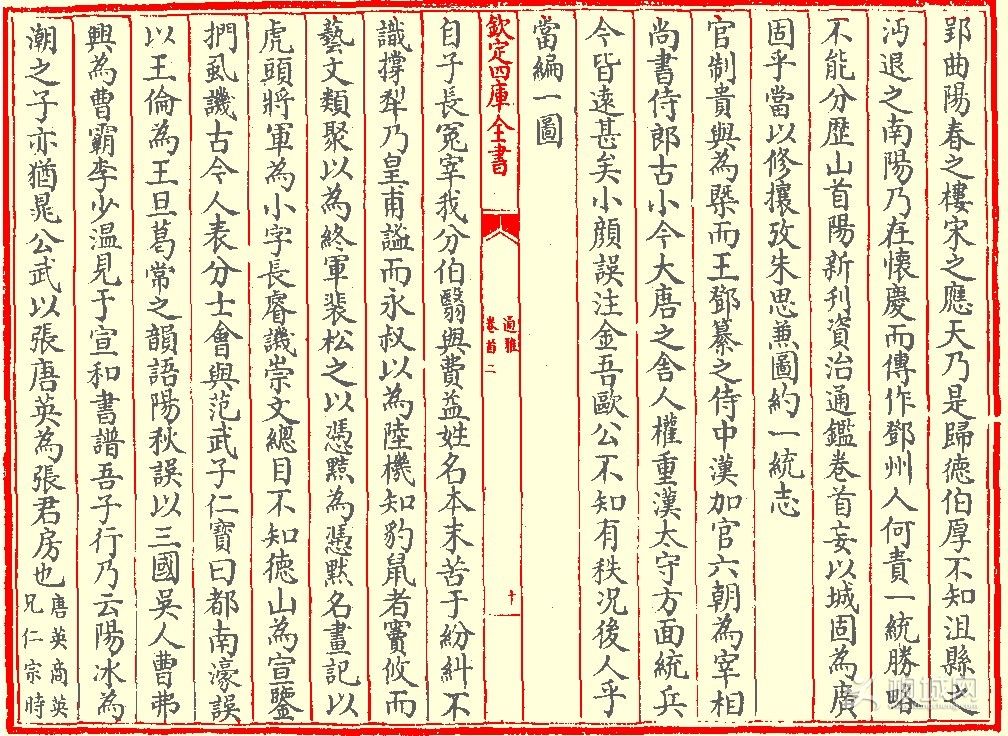 郢曲陽春之樓宋之應天乃是歸德伯厚不知沮縣之
沔退之南陽乃在懷慶而傳作鄧州人何責一統勝略
不能分歴山首陽新利資治通鑑卷首妄以城固為廣
固乎當以修攘攷朱思兼圖約一統志
官制貴與為槩而王鄧纂之侍中漢加官六朝為宰相
尚書侍郎古小今大唐之舍人權重漢太守方面統兵
今皆遠甚矣小顔誤注金吾歐公不知有秩况後人乎
當編一圖
欽定四庫全書
通雅
卷首二
十
自子長冤宰我分伯翳與費益姓名本末苦于紛糾不
識撐犁乃皇甫謐而永叔以為陸機知豹鼠者竇攸而
藝文類聚以為終軍裴松之以馮㸃為馮默名畫記以
虎頭將軍為小字長睿譏崇文總目不知德山為宣鑒
捫虱譏古今人表分士會與范武子仁寳曰都南濠誤
以王倫為王旦葛常之韻語陽秋誤以三國吳人曹弗
興為曹霸李少温見于宣和書譜吾子行乃云陽冰為
潮之子亦猶晁公武以張唐英為張君房也唐英商英
兄仁宗時